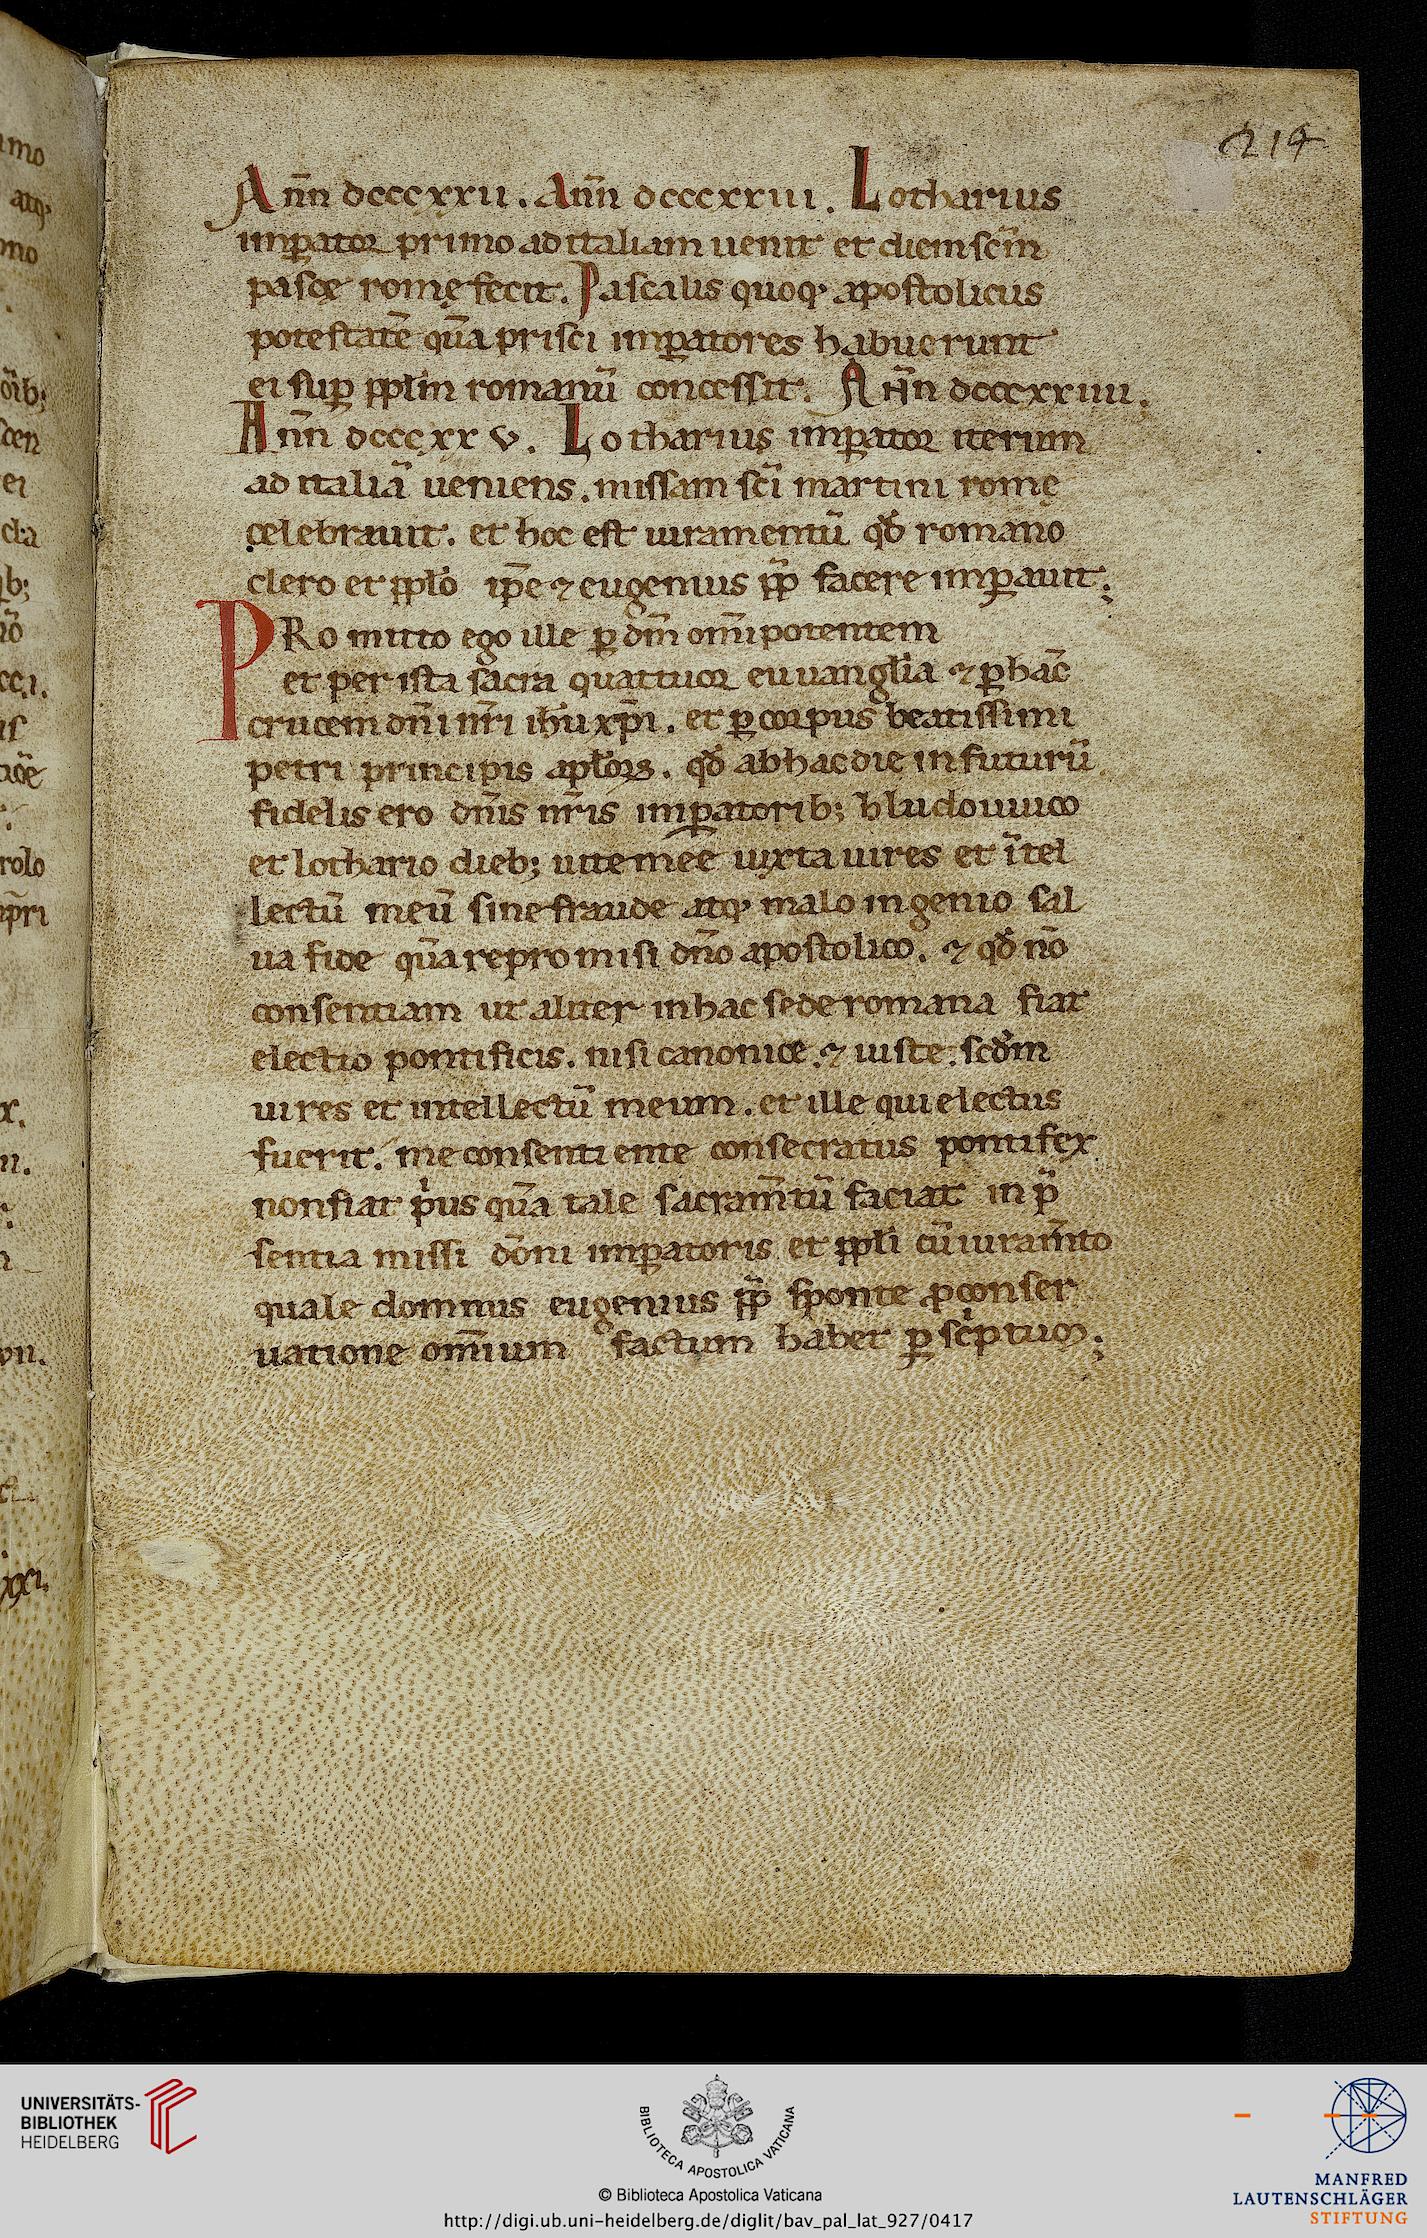 214
Ann̄ dcccxxii. Ann̄ dcccxxiii. Lotharius
imꝑator primo ad italiam uenit et diem sc̄m
pasce romę fecit. Pascalis quoq, apostolicus
potestatē quā prisci imꝑatores habuerunt
ei suꝑ ppl̄m romanū concessit. Ann̄ dcccxxiiii.
Ann̄ dcccxxv. Lotharius imꝑator iterum
ad italiā ueniens. missam sc̄i martini romę
celebrauit. et hoc est iuramentū qđ romano
clero et pplō ip̄e ⁊ eugenius pp̄ facere imꝑauit;
PRomitto ego ille ꝑ dm̄ om̄ipotentem
et per ista sacra quattuor euuangl̄ia ⁊ ꝑ hāc
crucem dn̄i nr̄i ih̄u xp̄i. et ꝑ corpus beatissimi
petri principis apl̄oꝝ. qđ ab hac die in futurū
fidelis ero dn̄is nr̄is imꝑatorib; hludouuico
et lothario dieb; uite mee iuxta uires et ītel
lectū meū sine fraude atq, malo ingenio sal
ua fide quā repromisi dn̄o apostolico. ⁊ qđ nō
consentiam ut aliter in hac sede romana fiat
electio pontificis. nisi canonice. ⁊ iuste. scđm
uires et intellectū meum. et ille qui electus
fuerit. me consentiente consecratus pontifex
non fiat pͥus quā tale sacram̄tū faciat in p̄
sentia missi dōni imꝑatoris et ppl̄i cū iuram̄to
quale domnus eugenius pp̄ sponte ꝓ conser
uatione om̄ium factum habet ꝑ scͥptum;
UNIVERSITÄTS-
BIBLIOTHEK
HEIDELBERG
BIBLIOTECA APOSTOLICA VATICANA
© Biblioteca Apostolica Vaticana
http://digi.ub.uni-heidelberg.de/diglit/bav_pal_lat_927/0417
MANFRED
LAUTENSCHLÄGER
STIFTUNG